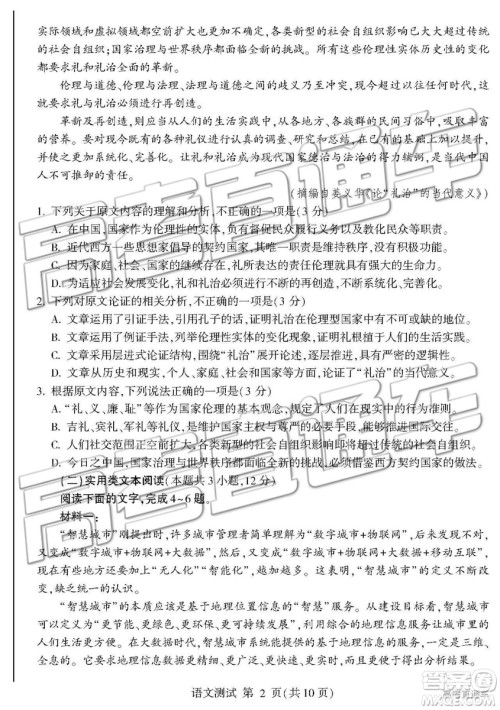 实际领域和虚拟领域都空前扩大与交叠,各类新型的社会组织影响已大大超过传统
的社会自组织;国家治理与世界秩序都面临全新的挑战。所有伦理性实体历史性的变化
都要求礼和礼治全面的革新。
伦理与道德、伦理与法理、法理与道德之间的歧异乃至冲突,现今超过以往任何时代,这
就要求礼与礼治必须进行再创造。
革新及再创造,则应从实际出发,从各地方、各族群的民间习俗、民间信仰中,吸取丰富
的营养。要对现今既有的各种礼仪进行认真的调查、研究和评估,在已有的基础上加以提升,
并使之更加系统化、完善化。让礼和礼治成为现代国家德治与法治的得力辅翼,是中国大
地上应运而生的时代要求。
(摘编自姜义华《论“礼治”的当代意义》)
1. 下列关于原文内容的理解和分析,不正确的一项是(3 分)
A. 在中国,国家作为伦理性的实体,常常负有督促民众履行义务以及教化民众等职责。
B. 近代西方一些思想家倡导契约国家的建立,旨在维持秩序,没有认识到国家的其他职责。
C. 因为家庭、社会、国家的继续存在,礼所派生的各种责任伦理就有存在的必要性。
D. 为适应社会发展带来的各种变化,我们需要对礼和礼治进行全面的革新和再创造。
2. 下列对原文论证的相关分析,不正确的一项是(3 分)
A. 文章运用了引证手法,引用孔子的话,证明礼治在伦理型国家中有不可或缺的作用。
B. 文章运用了例证手法,列举伦理性实体的变化现象,证明礼要回归人们的生活实践。
C. 文章采用层进式论证结构,围绕“礼治”展开论述,逐层推进,具有严密的逻辑性。
D. 文章从历史和现实,个人、社会和国家等层面,论述了礼治的内涵及其当代意义。
3. 根据原文内容,下列说法正确的一项是(3 分)
A. “礼、义、廉、耻”等作为国家伦理的基本观念、规定了现实中人们的行为准则。
B. 吉礼、宾礼、军礼等礼仪,是维护国家主权与尊严必不可少的重要手段。
C. 人们社交范围空前扩大,各类新型的社会组织的影响力将超过传统的社会自组织。
D. 今日之中国,国家治理与世界秩序都面临全新的挑战,必须借鉴西方契约国家的做法。
(二)实用类文本阅读(本题共 3 小题,12 分)
阅读下面的文字,完成 4~6 题。
材料一:
“智慧城市”刚提出时,许多城市管理者简单理解为“数字城市+物联网”,后来发现不对,
又变成“数字城市+物联网+大数据”,然后又变成“数字城市+物联网+大数据+移动互联”,
现在有人想加上“无人化”“智能化”,越加越多。这说明,“智慧城市”的定义不断改
变,因为缺乏统一的认识。
“智慧城市”的本质应该是基于地理位置信息的“智慧”服务。从过去以经济发展为
核心的定义,变成为“更节能、更环保、更绿色、更可持续”的定义,这需要以大数据为支
撑,以地理信息为服务。在大数据时代,智慧城市系统能提供的基于地理的信息,一定是三维、
全息的,也一定是更快速、更准确、更全面的。这就要求我们对地理信息的研究,
语文测试 第 2 页(共 10 页)
高考直通车